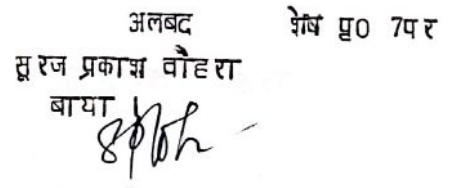 अलबद शेष पृ0 7पर
सूरज प्रकाश वौहरा
बाया